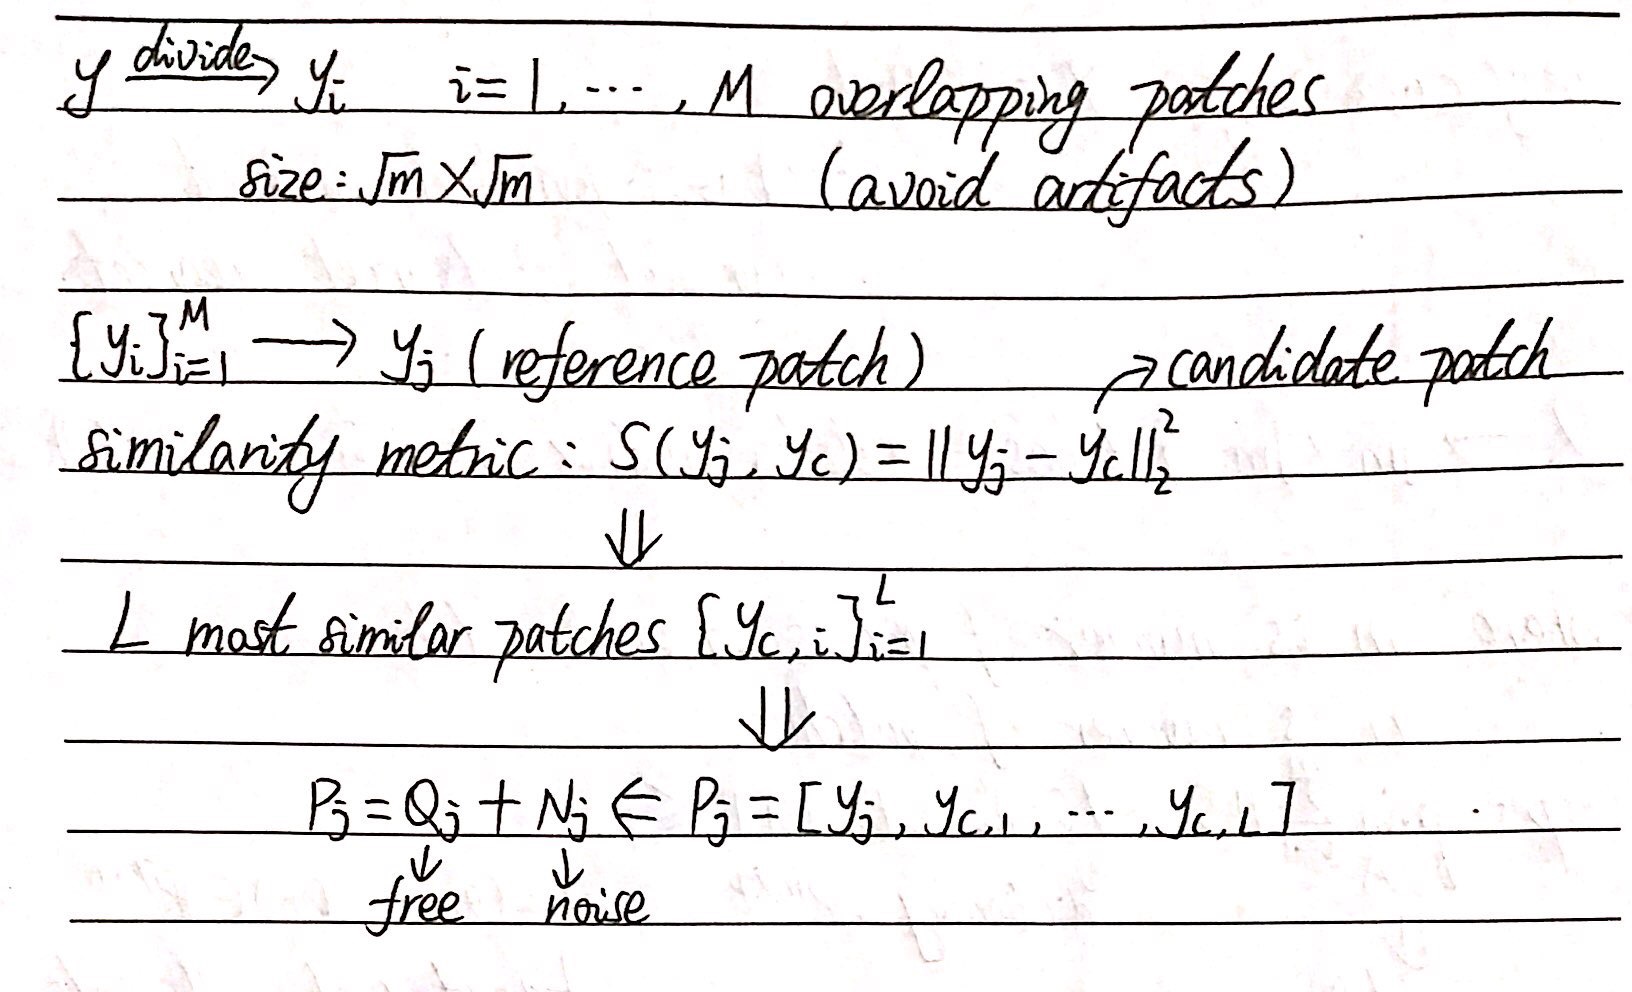 y divide→ y_i i=1, ⋯, M overlapping patches
size: √m × √m (avoid artifacts)
{y_i}_{i=1}^M ⟶ y_j (reference patch) → candidate patch
similarity metric: S(y_j, y_c) = ||y_j − y_c||_2^2
⇓
L most similar patches {y_{c,i}}_{i=1}^L
⇓
P_j = Q_j + N_j ⇐ P_j = [y_j, y_{c,1}, ⋯, y_{c,L}]
↓ ↓
free noise